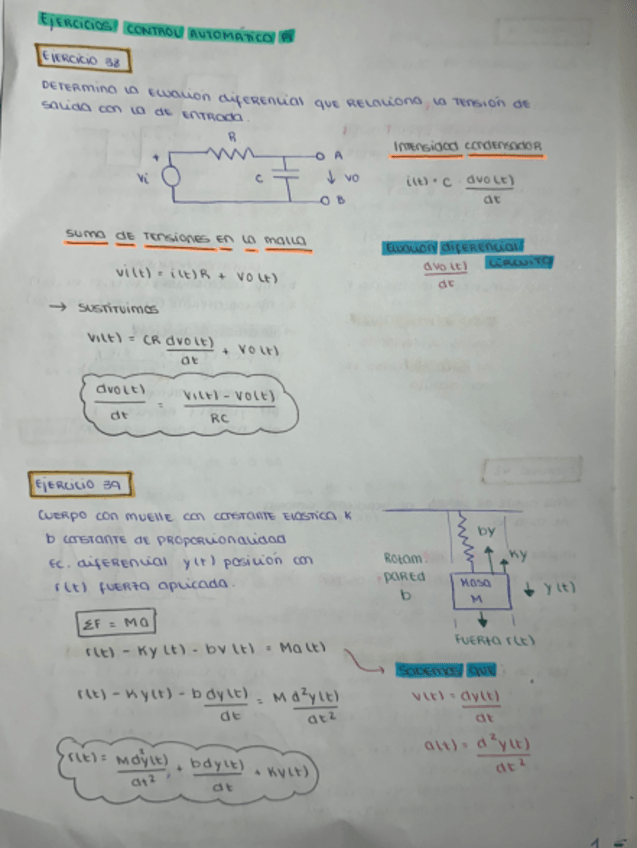 EJERCICIOS CONTROL AUTOMÁTICO
EJERCICIO 38
DETERMINA LA ECUACION diferencial QUE RELACIONA LA TENSIÓN DE
salida con la de ENTRADA.
R
+
Vi
C
A
VO
B
Intensidad condensador
i(t) = C · dvo(t)/dt
suma de tensiones en la malla
vi(t) = i(t)R + VO(t)
Ecuacion diferencial
circuito
dvo(t)/dt
→ sustituimos
vi(t) = CR dvo(t)/dt + VO(t)
dvo(t)/dt = Vi(t) - VO(t)/RC
EJERCICIO 39
CUERPO con muelle con constante elastica K
b constante de proporcionalidad
Ec. diferencial y(t) posición con
r(t) FUERZA aplicada.
by
Ky
Rozam.
pared
b
MASA
M
y(t)
FUERZA r(t)
ΣF = Ma
r(t) - Ky(t) - bv(t) = Ma(t)
SABEMOS QUE
r(t) - Ky(t) - b dy(t)/dt = M d²y(t)/dt²
v(t) = dy(t)/dt
a(t) = d²y(t)/dt²
r(t) = M d²y(t)/dt² + b dy(t)/dt + Ky(t)